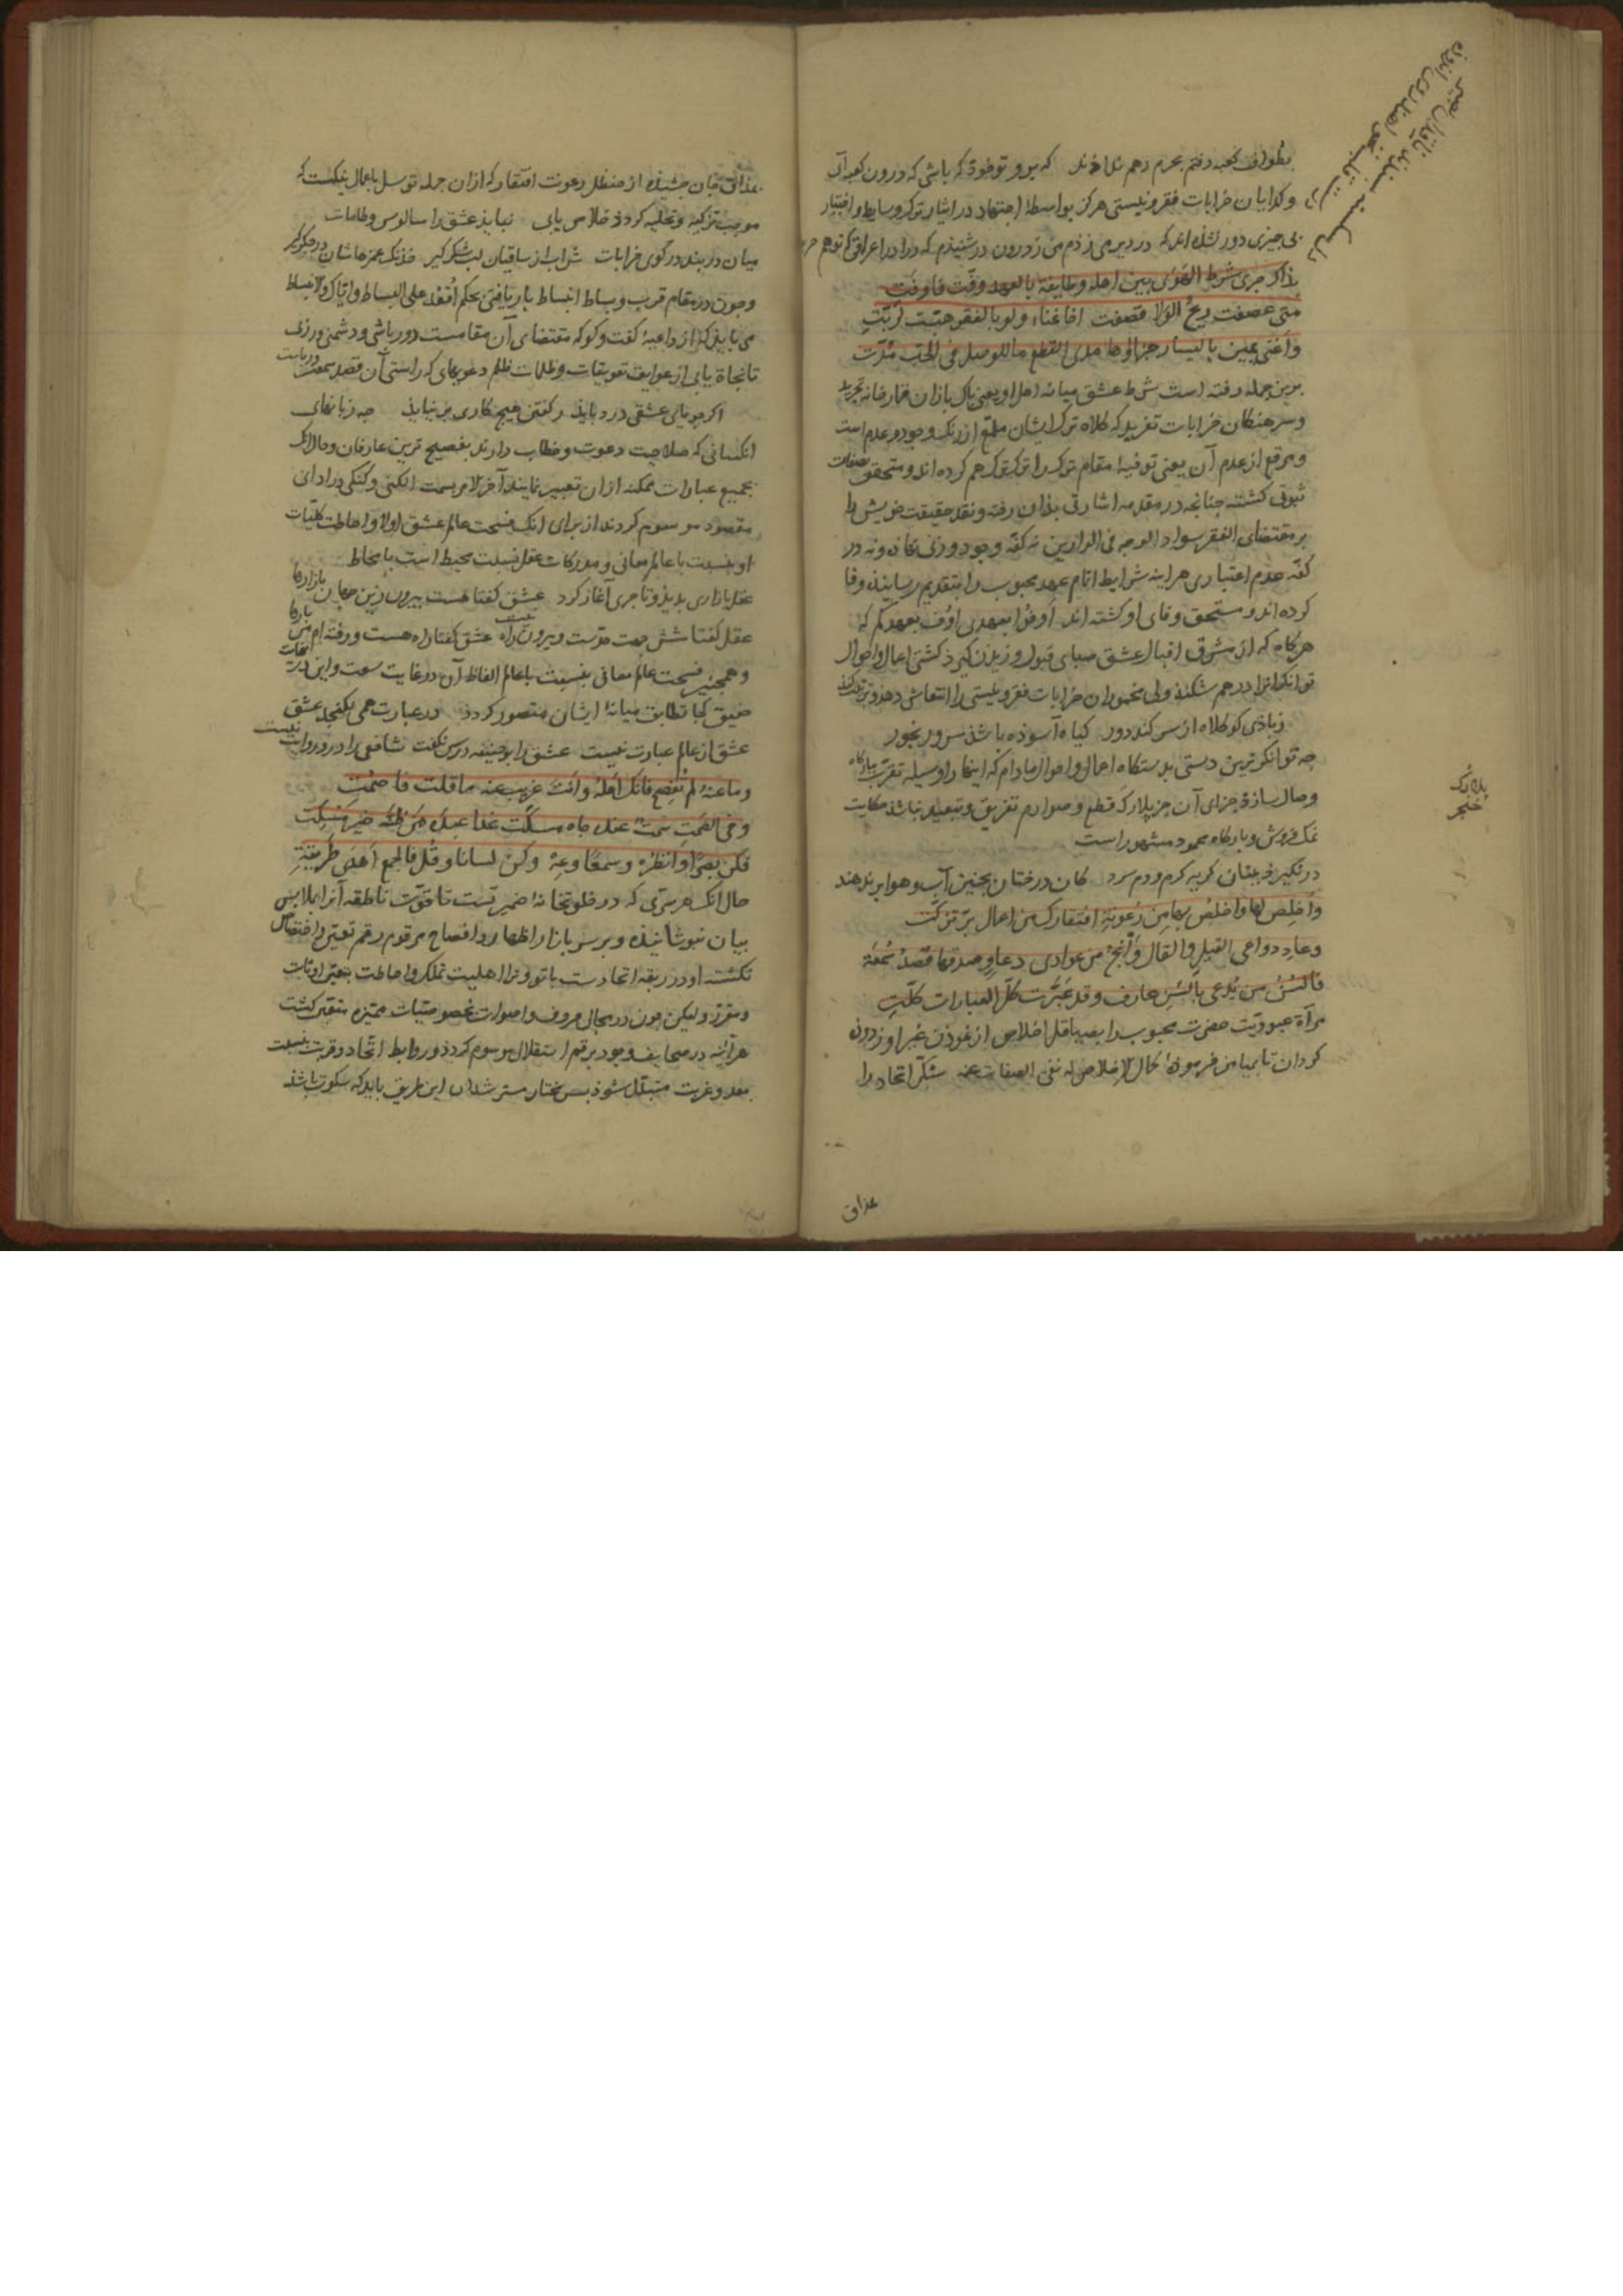 بطواف کعبه رفتم بحرم رهم ندادند که برو تو خود که باشی که درون کعبه آی
وکدایان خرابات فقر و نیستی هرکز بواسطهٔ اجتهاد در ایثار ترک وسایط و اختیار
بی چیزی دور نشده اند که در دیر می زدم من ز درون در شنیدم که درا درا عراقی که تو هم
بذاک جری شرط الهوی بین اهله وطایفة بالعهد وفّت فاوفت
متی عصفت ریح الولا قصفت اخا غناء ولو بالفقر هبّت لربّت
واغنی یمین بالیسار جزاؤها مدی القطع ما للوصل فی الحبّ مُدّت
برین جمله رفته است شرط عشق میانهٔ اهل او یعنی پاک بازان قمارخانهٔ تجرید
وسرهنکان خرابات تفرید که کلاه ترک ایشان ملمّع از رنک وجود و عدم است
ومرقع از عدم آن یعنی توفیهٔ مقام ترک را ترک ترک هم کرده اند و متحقق بصفات
ثبوتی کشته چنانچه در مقدمه اشارتی بذان رفته و نقد حقیقت خویش را
بر مقتضای الفقر سواد الوجه فی الدارین نه کفّه وجود وزنی نهاده و نه در
کفّه عدم اعتباری هر اینه شرایط اتمام عهد محبوب را بتقدیم رسانیده وفا
کرده اند و مستحق وفای او کشته اند اوفوا بعهدی اوف بعهدکم که
هرکاه که از مشرق اقبال عشق صبای قبول وزیدن کیرد کشتی اعمال و احوال
توانکرانرا درهم شکند ولی مخموران خرابات فقر و نیستی را انتعاشی دهد و تربیت کند
ز بادی کو کلاه از سر کند دور کیاه آسوده باشذ سرو رنجور
چه توانکرترین دستی بدستکاه اعمال و احوال مادام که اینها را وسیله تقرّب ببارکاه
وصال سازد جزای آن جز پلارک قطع و صوارم تفریق و تبعید نباشذ حکایت
نمک فروش و بارکاه محمود مشهور است
در نکیرد خبیثان کریه کرم و دم سرد کان درختان بچنین آب و هوا بر ندهند
واخلص لها واخلص بها من رعونة افتقارک من اعمال برّ تزکّت
وعاد دواعی القیل والقال وانج من عوادی دعاو صدقها قصد سمعة
فالسن من یدعی بالسن عارف وقد عبّرت کلّ العبارات کلّت
مرآة عبودیّت حضرت محبوب را بصیقل اخلاص از نفوذ غبر او زدون
کردان تا بیامن فرمودهٔ کمال الاخلاص له نفی الصفات عنه شکر اتحاد را
پلارک
خنجر
عذاق
بمذاق جان چشیذه از حنظل رعونت افتقار که ازان جمله توسل باعمال نیکست که
موجب تزکیه و تحلیه کردد خلاص یابی نیابد عشق را سالوس و طامات
میان دربند در کوی خرابات شراب از ساقیان لب شکر کیر خدنک غمزهاشان در جکر کیر
وچون در مقام قرب و بساط انبساط بار یافتی بحکم اقعد علی البساط وایاک والانبساط
می باید که از داعیهٔ کفت و کو که مقتضای آن مقامست دور باشی و دشمنی ورزی
تا نجاة یابی از عوایق تعویقات و ظلمات ظلم دعویهای که راستی آن قصد سمعت و ریاست
اکر جویایی عشقی درد بایذ ز کفتن هیچ کاری بر نیایذ چه زبانهای
انکسانی که صلاحیت دعوت و خطاب دارند بفصیح ترین عارفان و حال انک
بجمیع عبارات ممکنه ازان تعبیر نمایند آخر الامر بسمت الکنی و کنکی در ادای
مقصود موسوم کردند از برای انک فسحت عالم عشق اولا و احاطت کلیات
او بنسبت با عالم معانی و مدرکات عقل نسبت محیط است با محاط
عقل بازاری بدید و تاجری آغاز کرد عشق کفتا هست بیرون زین جهان بازارها
عقل کفتا شش جهت حدّست و بیرون راه نیست عشق کفتا راه هست و رفته ام من بارها
وهمچنین فسحت عالم معانی بنسبت با عالم الفاظ آن در غایت سعت و این در نهایت
ضیق کجا تطابق میانهٔ ایشان متصور کردد در عبارت همی نکنجد عشق
عشق از عالم عبارت نیست عشق را بوحنیفه درس نکفت شافعی را درو روایت نیست
وما عنه لم تفصح فانک اهله وانت غریب عنه ما قلت فاصمت
وفی الصمت سمت عنده جاه مسکّت غدا عبده من ظنّه خیر مسکت
فکن بصرا وانظر وسمعا وعه وکن لسانا وقل فالجمع اهدی طریقة
حال انک هر سرّی که در خلوتخانهٔ ضمیر تست تا قوّت ناطقه آنرا بملابس
بیان نپوشانیذه و بر سر بازار اظهار و افصاح مرقوم رقم تعیّن و اختصاص
نکشته او در ربقه اتحادست با تو و ترا اهلیت تملک و احاطت بتعیّن او ثابت
و مقرر و لیکن چون در مجالی حروف و اصوات بخصوصیّات ممیّزه متعیّن کشت
هر آینه در صحایف وجود برقم استقلال موسوم کردد و روابط اتّحاد و قربت بنسبت
بعد و غربت متبدّل شوذ بس مختار مسترشدان این طریق باید که سکوت باشذ